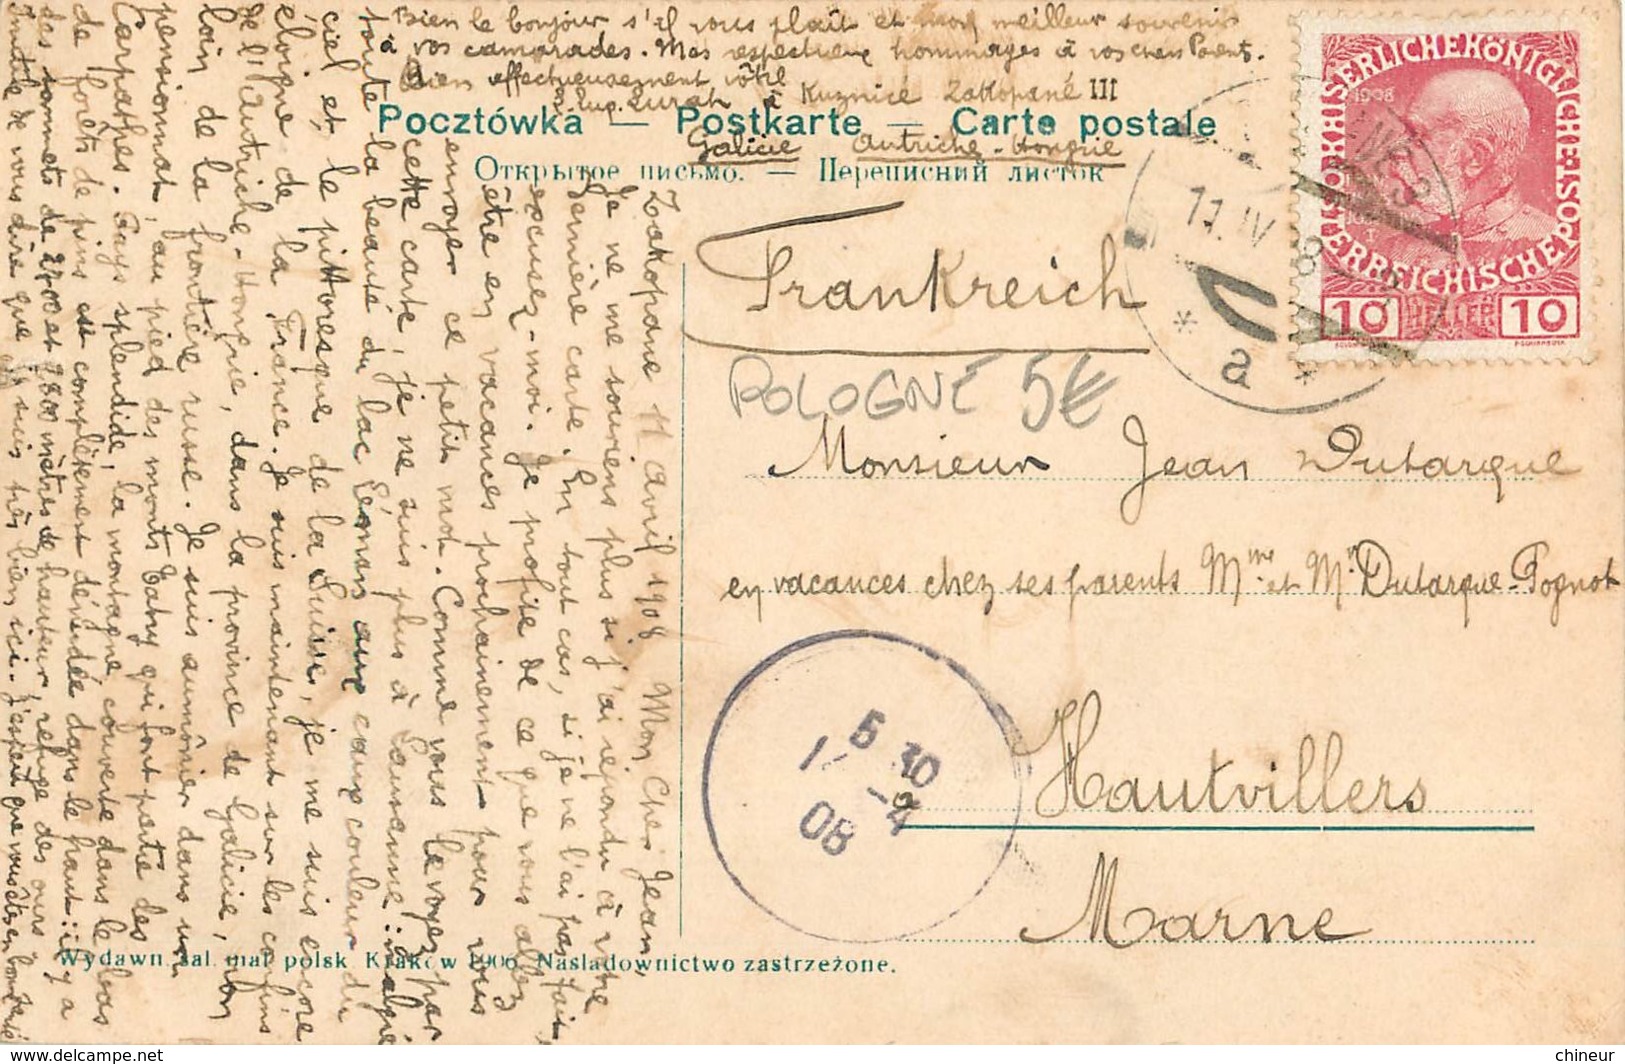 Bien le bonjour s'il vous plaît et mon meilleur souvenir
à vos camarades. Mes respectueux hommages à vos chers Parents.
Bien affectueusement vôtre
à Kuznice Zakopané III
Pocztówka — Postkarte — Carte postale
Galicie Autriche-Hongrie
Открытое письмо. — Переписний листок
Zakopane 11 Avril 1908 Mon Cher Jean,
Je ne me souviens plus si j'ai répondu à votre
dernière carte. En tout cas, si je ne l'ai pas fait,
excusez-moi. Je profite de ce que vous allez
être en vacances prochainement pour vous
envoyer ce petit mot. Comme vous le voyez par
cette carte, je ne suis plus à Lausanne: malgré
toute la beauté du lac Léman aux eaux couleur du
ciel et le pittoresque de la Suisse, je me suis encore
éloigné de la France. Je suis maintenant sur les confins
de l'Autriche-Hongrie, dans la province de Galicie, non
loin de la frontière russe. Je suis aumônier dans un
pensionnat, au pied des monts Tatry qui font partie des
Carpathes. Pays splendide, la montagne couverte dans le bas
de forêts de pins est complètement dénudée dans le haut: il y a
des sommets de 2700 et 2800 mètres de hauteur, refuge des ours
Inutile de vous dire que je suis très bien ici. J'espère que vous êtes en bonne santé
Wydawn. sal. mal. polsk. Kraków 1906. Nasladownictwo zastrzeżone.
Frankreich
POLOGNE 5€
Monsieur Jean Dutarque
en vacances chez ses parents Mme et Mr Dutarque-Pognot
Hautvillers
Marne
KAISERLICHE KÖNIGLICHE ÖSTERREICHISCHE POST
1908
10 HELLER 10
11.IV 8
* a *
5 30
08
chineur
www.delcampe.net